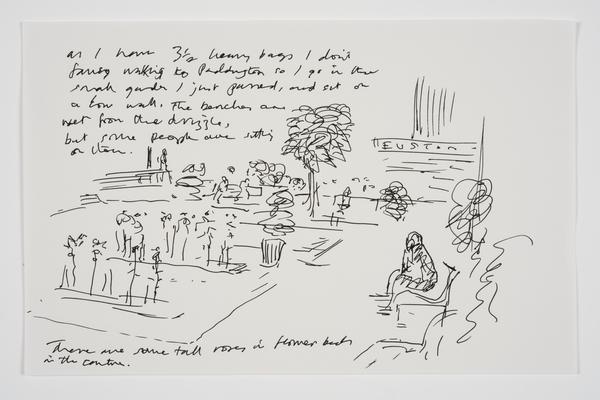 as I have 3½ heavy bags I don't
fancy walking to Paddington so I go in the
small garden I just passed, and sit on
a low wall. The benches are
wet from the drizzle,
but some people are sitting
on them.
EUSTON
There are some tall roses in flower beds
in the centre.